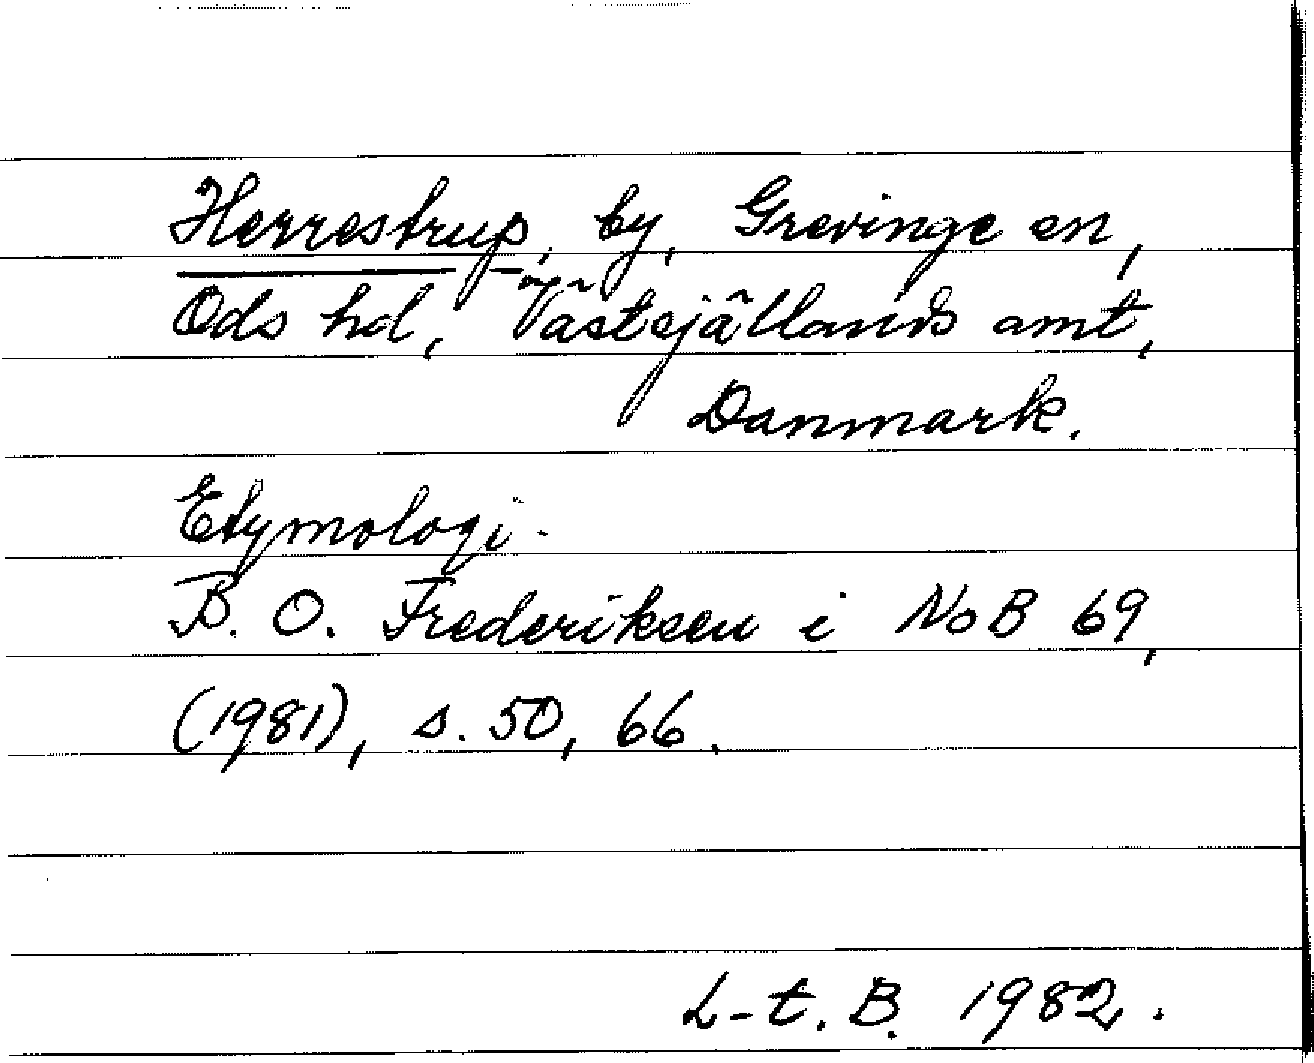 Herrestrup, by, Grevinge sn,
Ods hd, Västsjällands amt,
Danmark.
Etymologi.
B. O. Frederiksen i NoB 69,
(1981), s. 50, 66.
L-t. B. 1982.